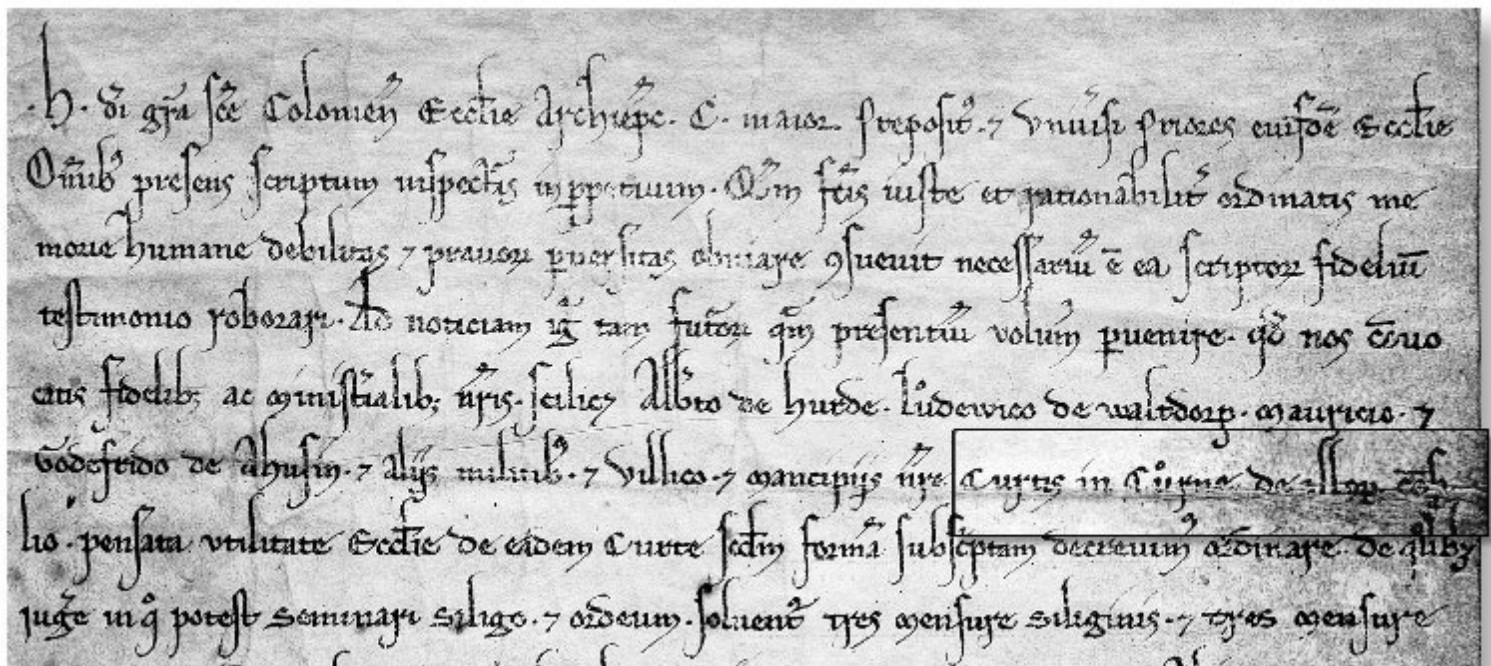 .H. di gra sce Colonien Ecclie Archiepc. C. maior preposit. ⁊ vnuisi priores eiusde Ecclie
Omib presens scriptum inspectis inppetuum. Qm fcis iuste et rationabilit ordinatis me
morie humane debilitas ⁊ prauoꝝ puersitas obuiare ꝯsueuit necessariu e ea scriptoꝝ fideliu
testimonio roborari. Ad noticiam ig tam futoꝝ qm presentiu volum puenire. qd nos cuo
catis fidelib; ac ministialib; nris. scilicꝫ Albto de hurde. Ludewico de waltdorp. mauricio. ⁊
Godefrido de Ahusin. ⁊ alijs militib. ⁊ villico. ⁊ mancipijs nre Curtis in Curne de illoꝝ
lio. pensata vtilitate Ecclie de eidem Curte scdm forma subscptam decreuim ordinare. de qlibꝫ
iuge in q potest seminari siligo. ⁊ ordeum. soluent tres mensure siliginis. ⁊ tres mensure